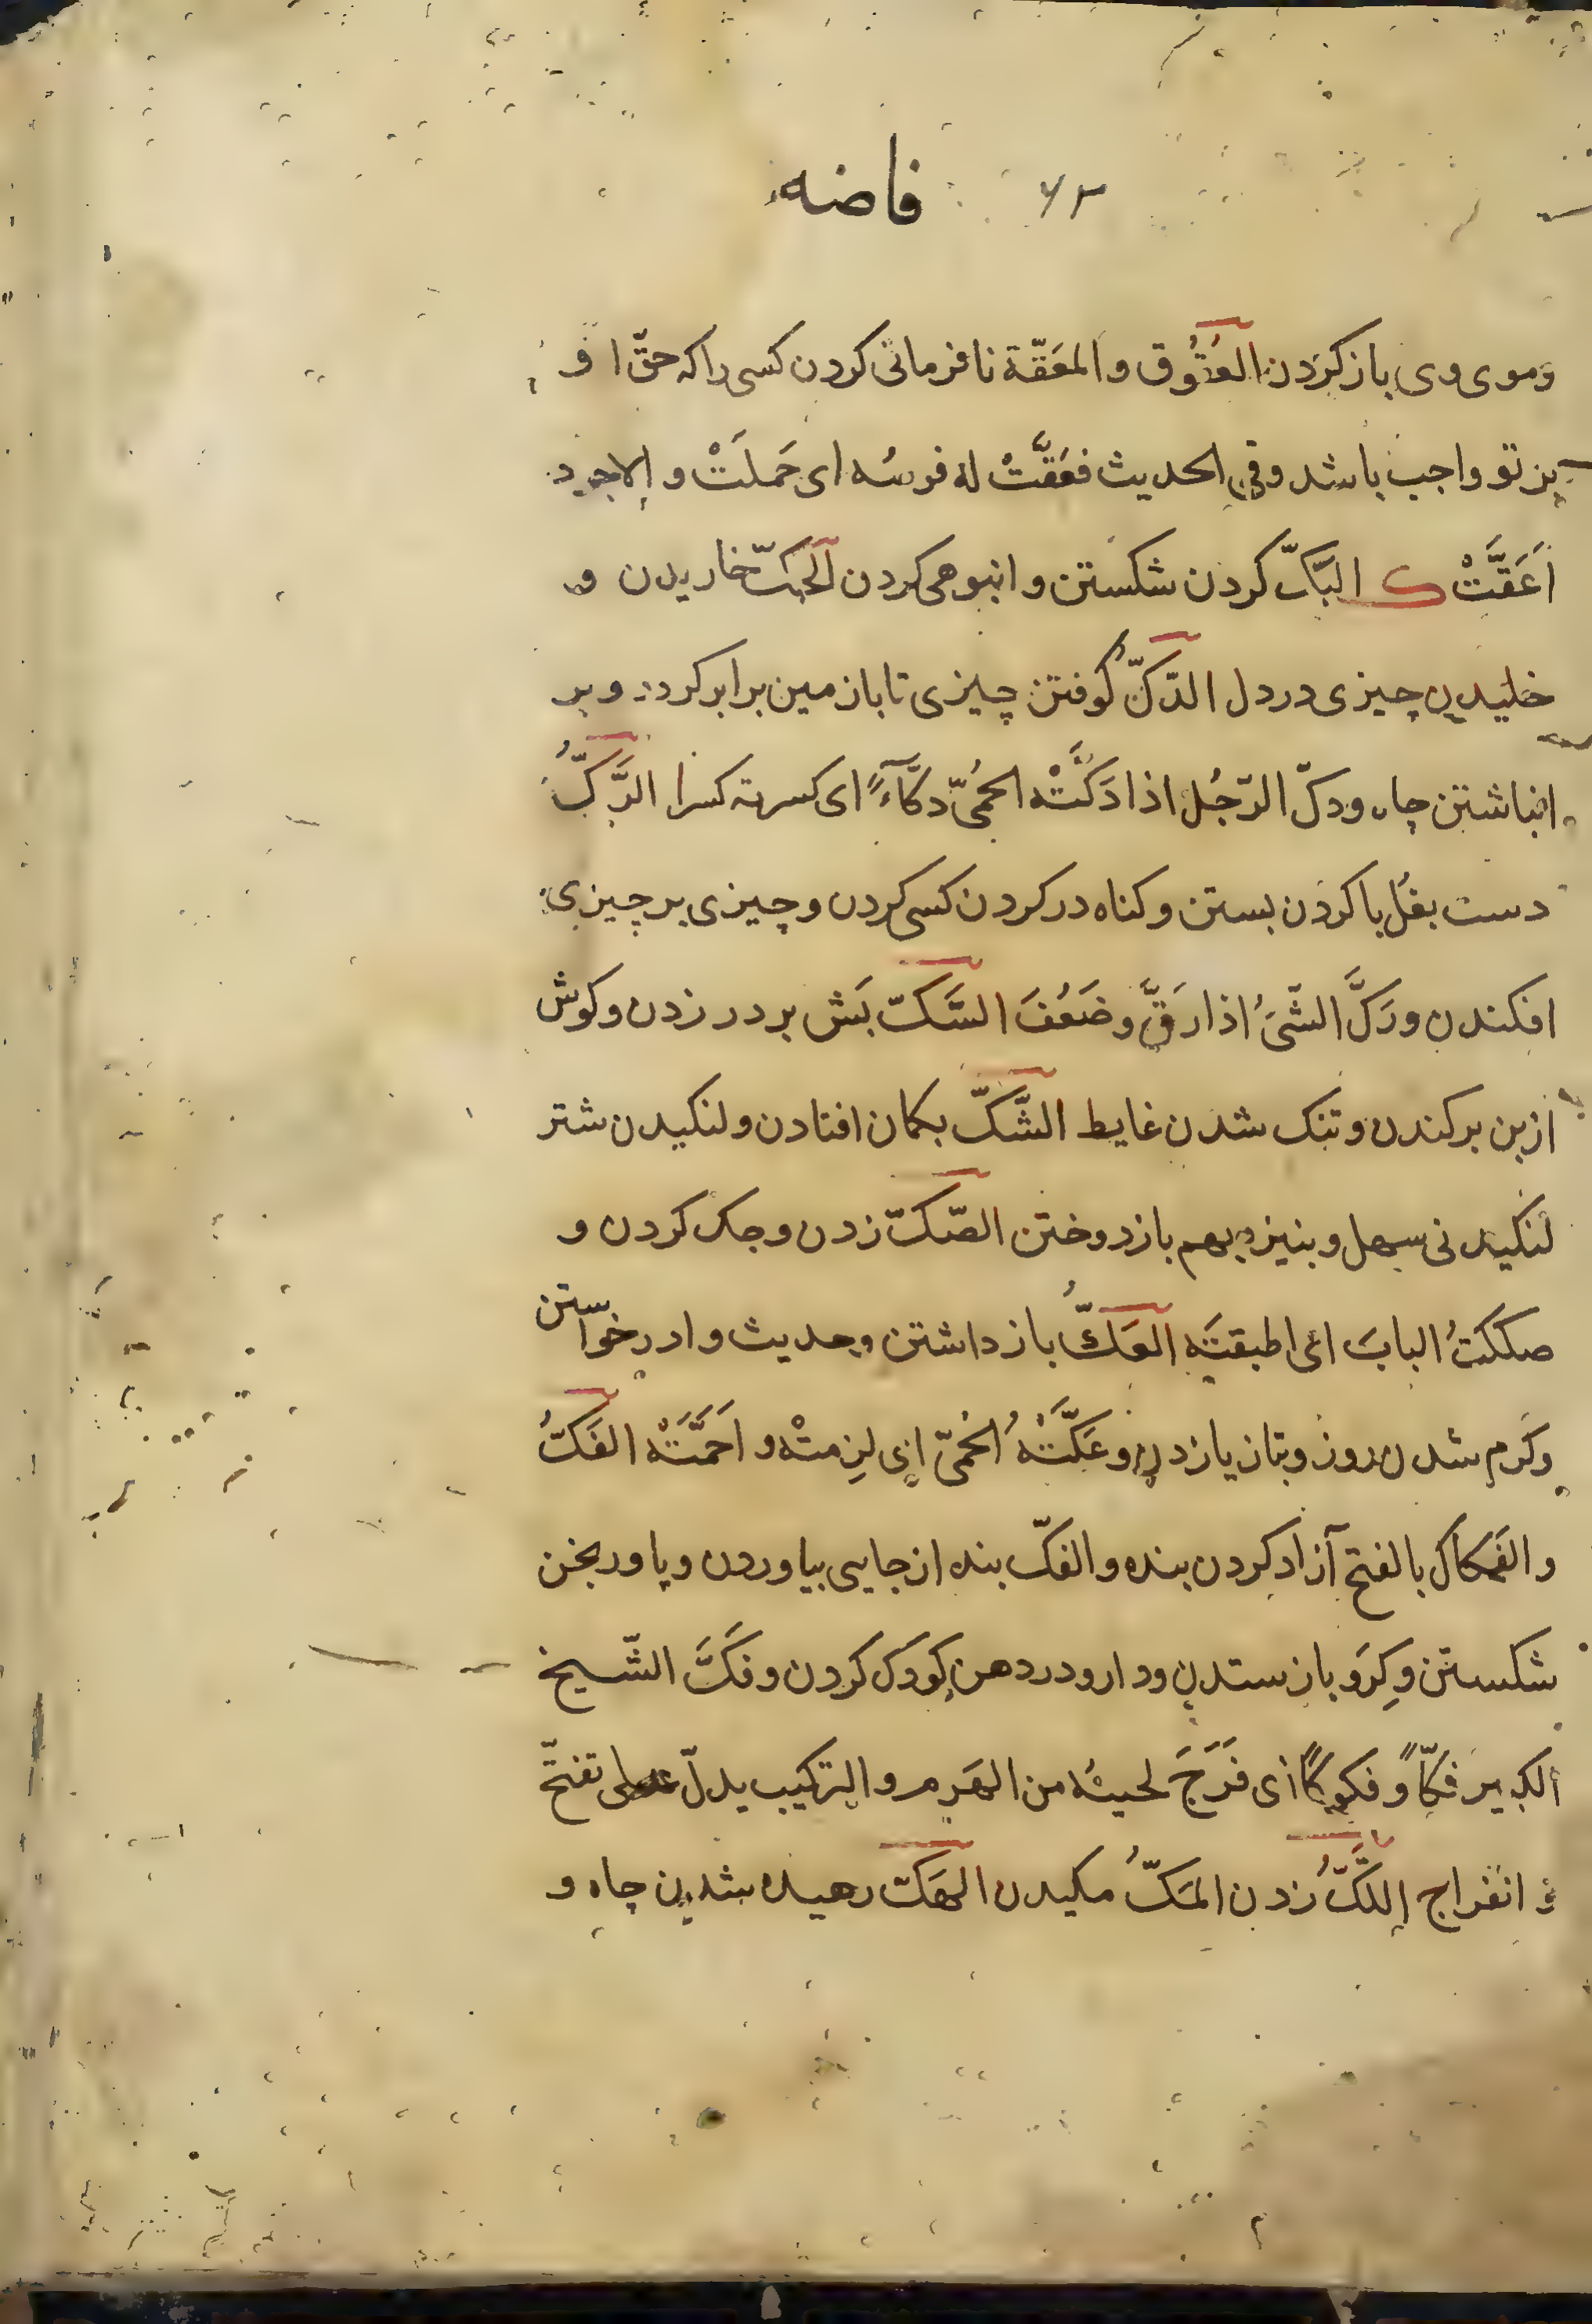 ۶۲ فاضه
وموی وی باز کردن العُقُوق والمعَقّة نافرمانی کردن کسی را که حقّ او
بر تو واجب باشد وفی الحدیث فعَقَّتْ له فرسُه ای حَملَتْ و الاجود
اَعَقَّتْ ک البَکّ کردن شکستن و انبوهی کردن الحَکّ خاریدن و
خلیدن چیزی در دل الدّکّ کُوفتن چیزی تا بازمین برابر کردد و بر
انباشتن چاه ودکّ الرّجُل اذا دَکَّتْه الحُمّیّ دکّاءً ای کسرته کسرا الرَّکُّ
دست بغُل با کردن بستن و کناه در کردن کسی کردن و چیزی بر چیزی
افکندن ورَکَّ الشّیُ اذا رَقَّ وضَعُفَ السَّکّ بَش بر در زدن و کوش
از بن برکندن و تنک شدن غایط الشَّکّ بکمان افتادن و لنکیدن شتر
لنکیدنی سهل و بنیزه بهم باز دوختن الصّکّ زدن و جک کردن و
صککتُ البابَ ای اطبقتَه العَکُّ باز داشتن وحدیث وا درخواستن
وکرم شدن روز و بتازیازدن وعَکَّتْهُ الحُمّیّ ای لزِمتْه و اَحَمَّتَه الفَکُّ
والفَکاک بالفتح آزاد کردن بنده والفکّ بند از جایی بیاوردن و پا ورنجن
شکستن و کِرَو باز ستدن و دارو در دهن کودک کردن و فَکَّ الشّیخ
الکبیر فکّاً و فکوکاً ای فَرَجَ لحیتُه من الهَرِم و الترکیب یدلّ علی تفتّح
و انفراج اللّکُّ زدن المَکُّ مکیدن الهَکّ رهیده شدن چاه و